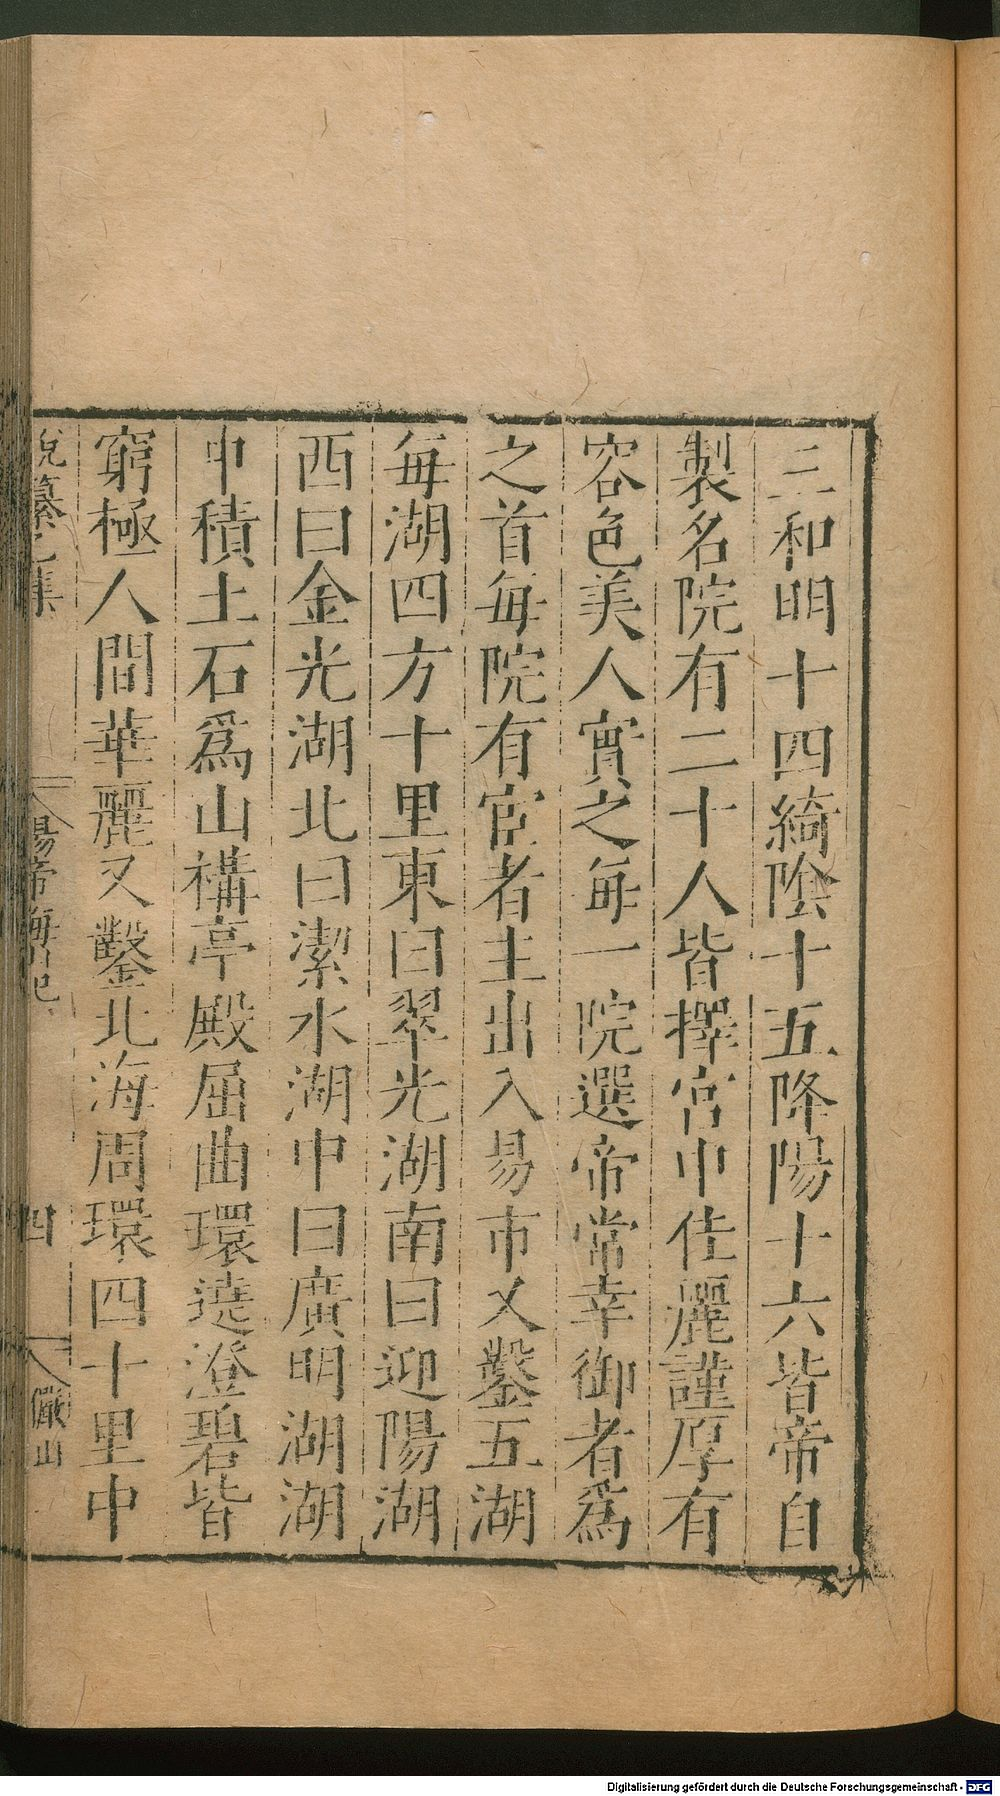 三和明十四綺陰十五降陽十六皆帝自
製名院有二十人皆擇宮中佳麗謹厚有
容色美人實之每一院選帝常幸御者爲
之首每院有宦者主出入易市又鑿五湖
每湖四方十里東曰翠光湖南曰迎陽湖
西曰金光湖北曰潔水湖中曰廣明湖湖
中積土石爲山構亭殿屈曲環遶澄碧皆
窮極人間華麗又鑿北海周環四十里中
說纂乙集
煬帝海山記
四
儼山
Digitalisierung gefördert durch die Deutsche Forschungsgemeinschaft - DFG